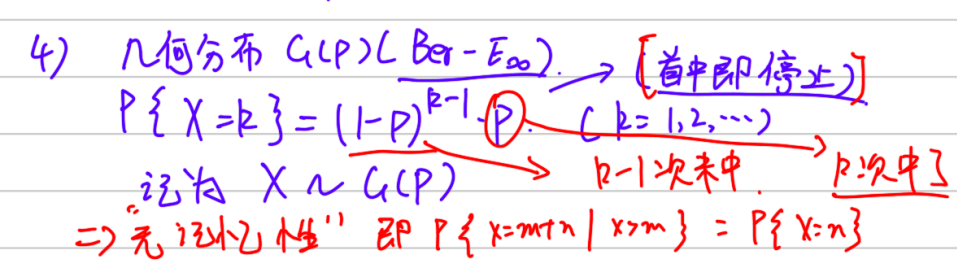 4) 几何分布 G(P)(Ber-E∞). → [首中即停止)]
P{X=k}=(1-P)^{k-1}·P. (k=1,2,…)
k-1次未中. k次中了
记为 X~G(P)
=> "无记忆性" 即 P{X=m+n|X>m} = P{X=n}